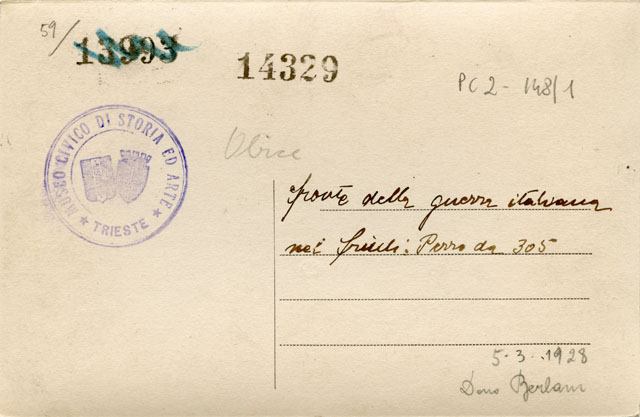 59/
13993
14329
PC2-148/1
MUSEO CIVICO DI STORIA ED ARTE
★ TRIESTE ★
Obice
fronte della guerra italiana
nei friuli: Pezzo da 305
5-3-1928
Dono Berlam